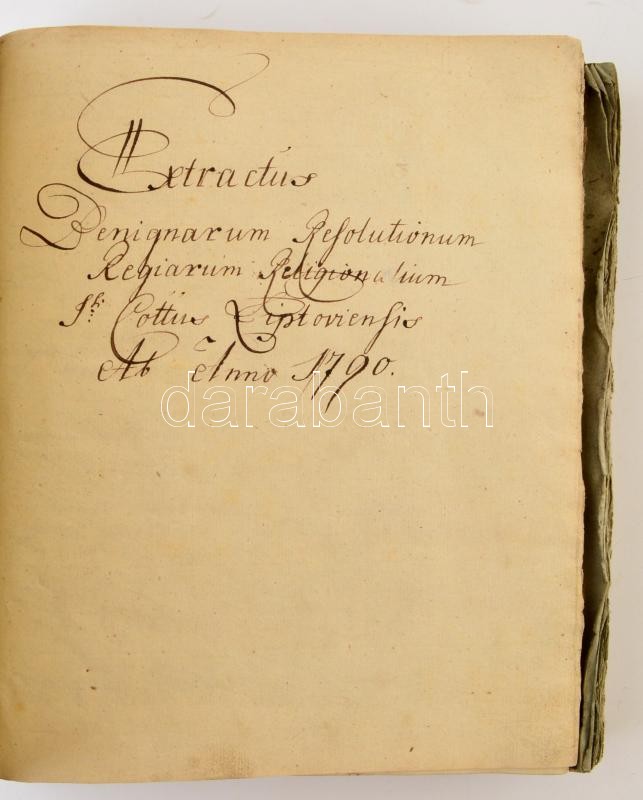 Extractus
Benignarum Resolutionum
Regiarum Religionalium
Cottus Liptoviensis
Ab Anno 1790.
darabanth